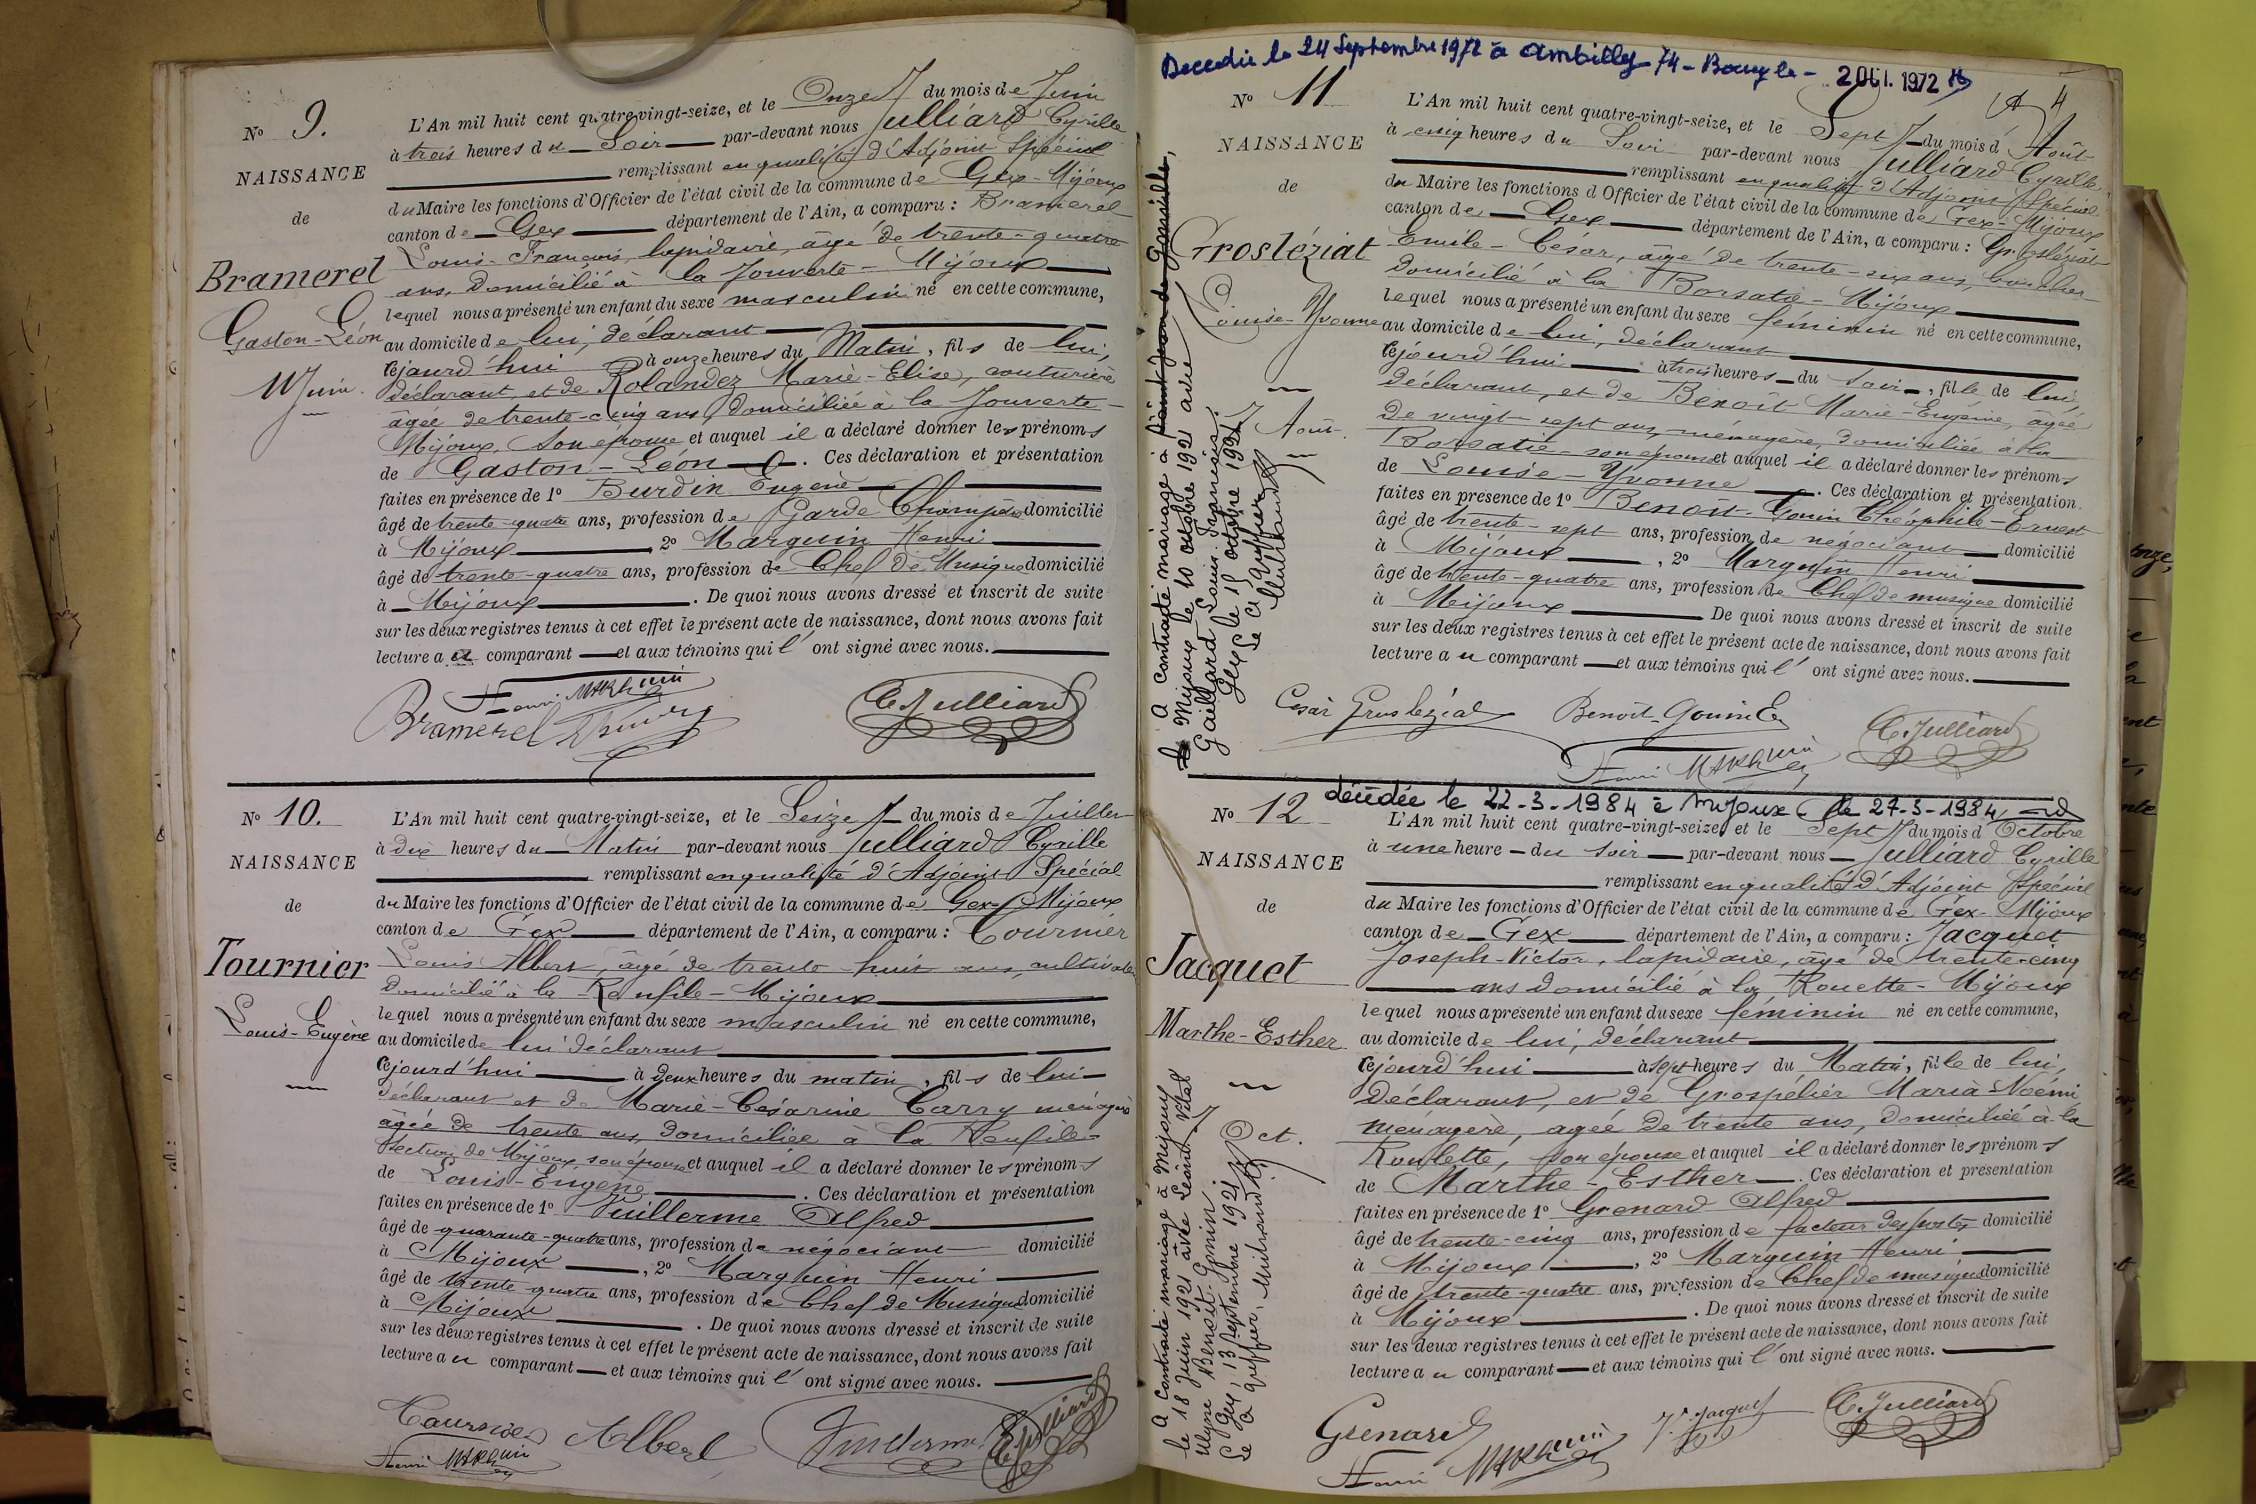 No 9.
NAISSANCE
de
Bramerel
Gaston-Léon
11 Juin.
L'An mil huit cent quatre-vingt-seize, et le Onze du mois de Juin
à trois heures du Soir par-devant nous Julliard Cyrille
remplissant en qualité d'Adjoint Spécial
du Maire les fonctions d'Officier de l'état civil de la commune de Gex-Mijoux
canton de Gex département de l'Ain, a comparu : Bramerel
Louis-François, lapidaire, âgé de trente-quatre
ans, domicilié à la Jouverte-Mijoux
lequel nous a présenté un enfant du sexe masculin né en cette commune,
au domicile de lui, déclarant
cejourd'hui à onze heures du Matin, fils de lui,
déclarant, et de Rolandez Marie-Elise, couturière
âgée de trente-cinq ans, domiciliée à la Jouverte-
Mijoux, son épouse et auquel il a déclaré donner les prénoms
de Gaston-Léon. Ces déclaration et présentation
faites en présence de 1o Burdin Eugène
âgé de trente-quatre ans, profession de Garde Champêtre domicilié
à Mijoux, 2o Marquin Henri
âgé de trente-quatre ans, profession de Chef de Musique domicilié
à Mijoux. De quoi nous avons dressé et inscrit de suite
sur les deux registres tenus à cet effet le présent acte de naissance, dont nous avons fait
lecture au comparant et aux témoins qui l'ont signé avec nous.
Henri Marquin
Bramerel
C. Julliard
No 10.
NAISSANCE
de
Tournier
Louis-Eugène
L'An mil huit cent quatre-vingt-seize, et le Seize du mois de Juillet
à dix heures du Matin par-devant nous Julliard Cyrille
remplissant en qualité d'Adjoint Spécial
du Maire les fonctions d'Officier de l'état civil de la commune de Gex Mijoux
canton de Gex département de l'Ain, a comparu : Tournier
Louis Albert, âgé de trente-huit ans, cultivateur
domicilié à la Renfile-Mijoux
lequel nous a présenté un enfant du sexe masculin né en cette commune,
au domicile de lui déclarant
cejourd'hui à deux heures du matin, fils de lui
déclarant et de Marie-Césarine Carry ménagère
âgée de trente ans, domiciliée à la Renfile-
section de Mijoux, son épouse et auquel il a déclaré donner les prénoms
de Louis-Eugène. Ces déclaration et présentation
faites en présence de 1o Vuillerme Alfred
âgé de quarante-quatre ans, profession de négociant domicilié
à Mijoux, 2o Marquin Henri
âgé de trente quatre ans, profession de Chef de Musique domicilié
à Mijoux. De quoi nous avons dressé et inscrit de suite
sur les deux registres tenus à cet effet le présent acte de naissance, dont nous avons fait
lecture au comparant et aux témoins qui l'ont signé avec nous.
Tournier Albert
Vuillerme
C. Julliard
Henri Marquin
Decedée le 24 Septembre 1972 à Ambilly 74 - Bourg le - 2 Oct. 1972
4
No 11
NAISSANCE
de
Grosléziat
Louise-Yvonne
7 Août.
A contracté mariage à
Mijoux le 10 octobre 192 avec
Gaillard Louis François.
Gex le 18 octobre 192
Le Greffier
L'An mil huit cent quatre-vingt-seize, et le Sept du mois d'Août
à cinq heures du Soir par-devant nous Julliard Cyrille
remplissant en qualité d'Adjoint Spécial
du Maire les fonctions d'Officier de l'état civil de la commune de Gex-Mijoux
canton de Gex département de l'Ain, a comparu : Grosléziat
Emile-César, âgé de trente-six ans, boucher
domicilié à la Borsatie-Mijoux
lequel nous a présenté un enfant du sexe féminin né en cette commune,
au domicile de lui, déclarant
cejourd'hui à trois heures du soir, fille de lui
déclarant, et de Benoît Marie-Eugénie, âgée
de vingt-sept ans, ménagère, domiciliée à la
Borsatie-son épouse et auquel il a déclaré donner les prénoms
de Louise-Yvonne. Ces déclaration et présentation
faites en présence de 1o Benoît-Gonin Théophile-Ernest
âgé de trente-sept ans, profession de négociant domicilié
à Mijoux, 2o Marquin Henri
âgé de trente-quatre ans, profession de Chef de musique domicilié
à Mijoux De quoi nous avons dressé et inscrit de suite
sur les deux registres tenus à cet effet le présent acte de naissance, dont nous avons fait
lecture au comparant et aux témoins qui l'ont signé avec nous.
César Grosléziat
Benoit-Gonin E
C. Julliard
Henri Marquin
décédée le 22-3-1984 à Mijoux le 27-3-1984
No 12
NAISSANCE
de
Jacquet
Marthe-Esther
7 Oct.
A contracté mariage à Mijoux
le 18 Juin 1921 avec Léon Vital
Ulysse Benoit-Gonin.
Gex, 13 Septembre 1921.
Le Greffier,
L'An mil huit cent quatre-vingt-seize, et le Sept du mois d'Octobre
à une heure du soir par-devant nous Julliard Cyrille
remplissant en qualité d'Adjoint Spécial
du Maire les fonctions d'Officier de l'état civil de la commune de Gex-Mijoux
canton de Gex département de l'Ain, a comparu : Jacquet
Joseph-Victor, lapidaire, âgé de trente-cinq
ans domicilié à la Roulette-Mijoux
lequel nous a présenté un enfant du sexe féminin né en cette commune,
au domicile de lui, déclarant
cejourd'hui à sept heures du Matin, fille de lui,
déclarant, et de Grospélier Maria Noémi
ménagère, agée de trente ans, domiciliée à la
Roulette, son épouse et auquel il a déclaré donner les prénoms
de Marthe-Esther. Ces déclaration et présentation
faites en présence de 1o Grenard Alfred
âgé de trente-cinq ans, profession de facteur des postes domicilié
à Mijoux, 2o Marquin Henri
âgé de trente-quatre ans, profession de Chef de musique domicilié
à Mijoux. De quoi nous avons dressé et inscrit de suite
sur les deux registres tenus à cet effet le présent acte de naissance, dont nous avons fait
lecture au comparant et aux témoins qui l'ont signé avec nous.
Grenard
Henri Marquin
Jacquet
C. Julliard